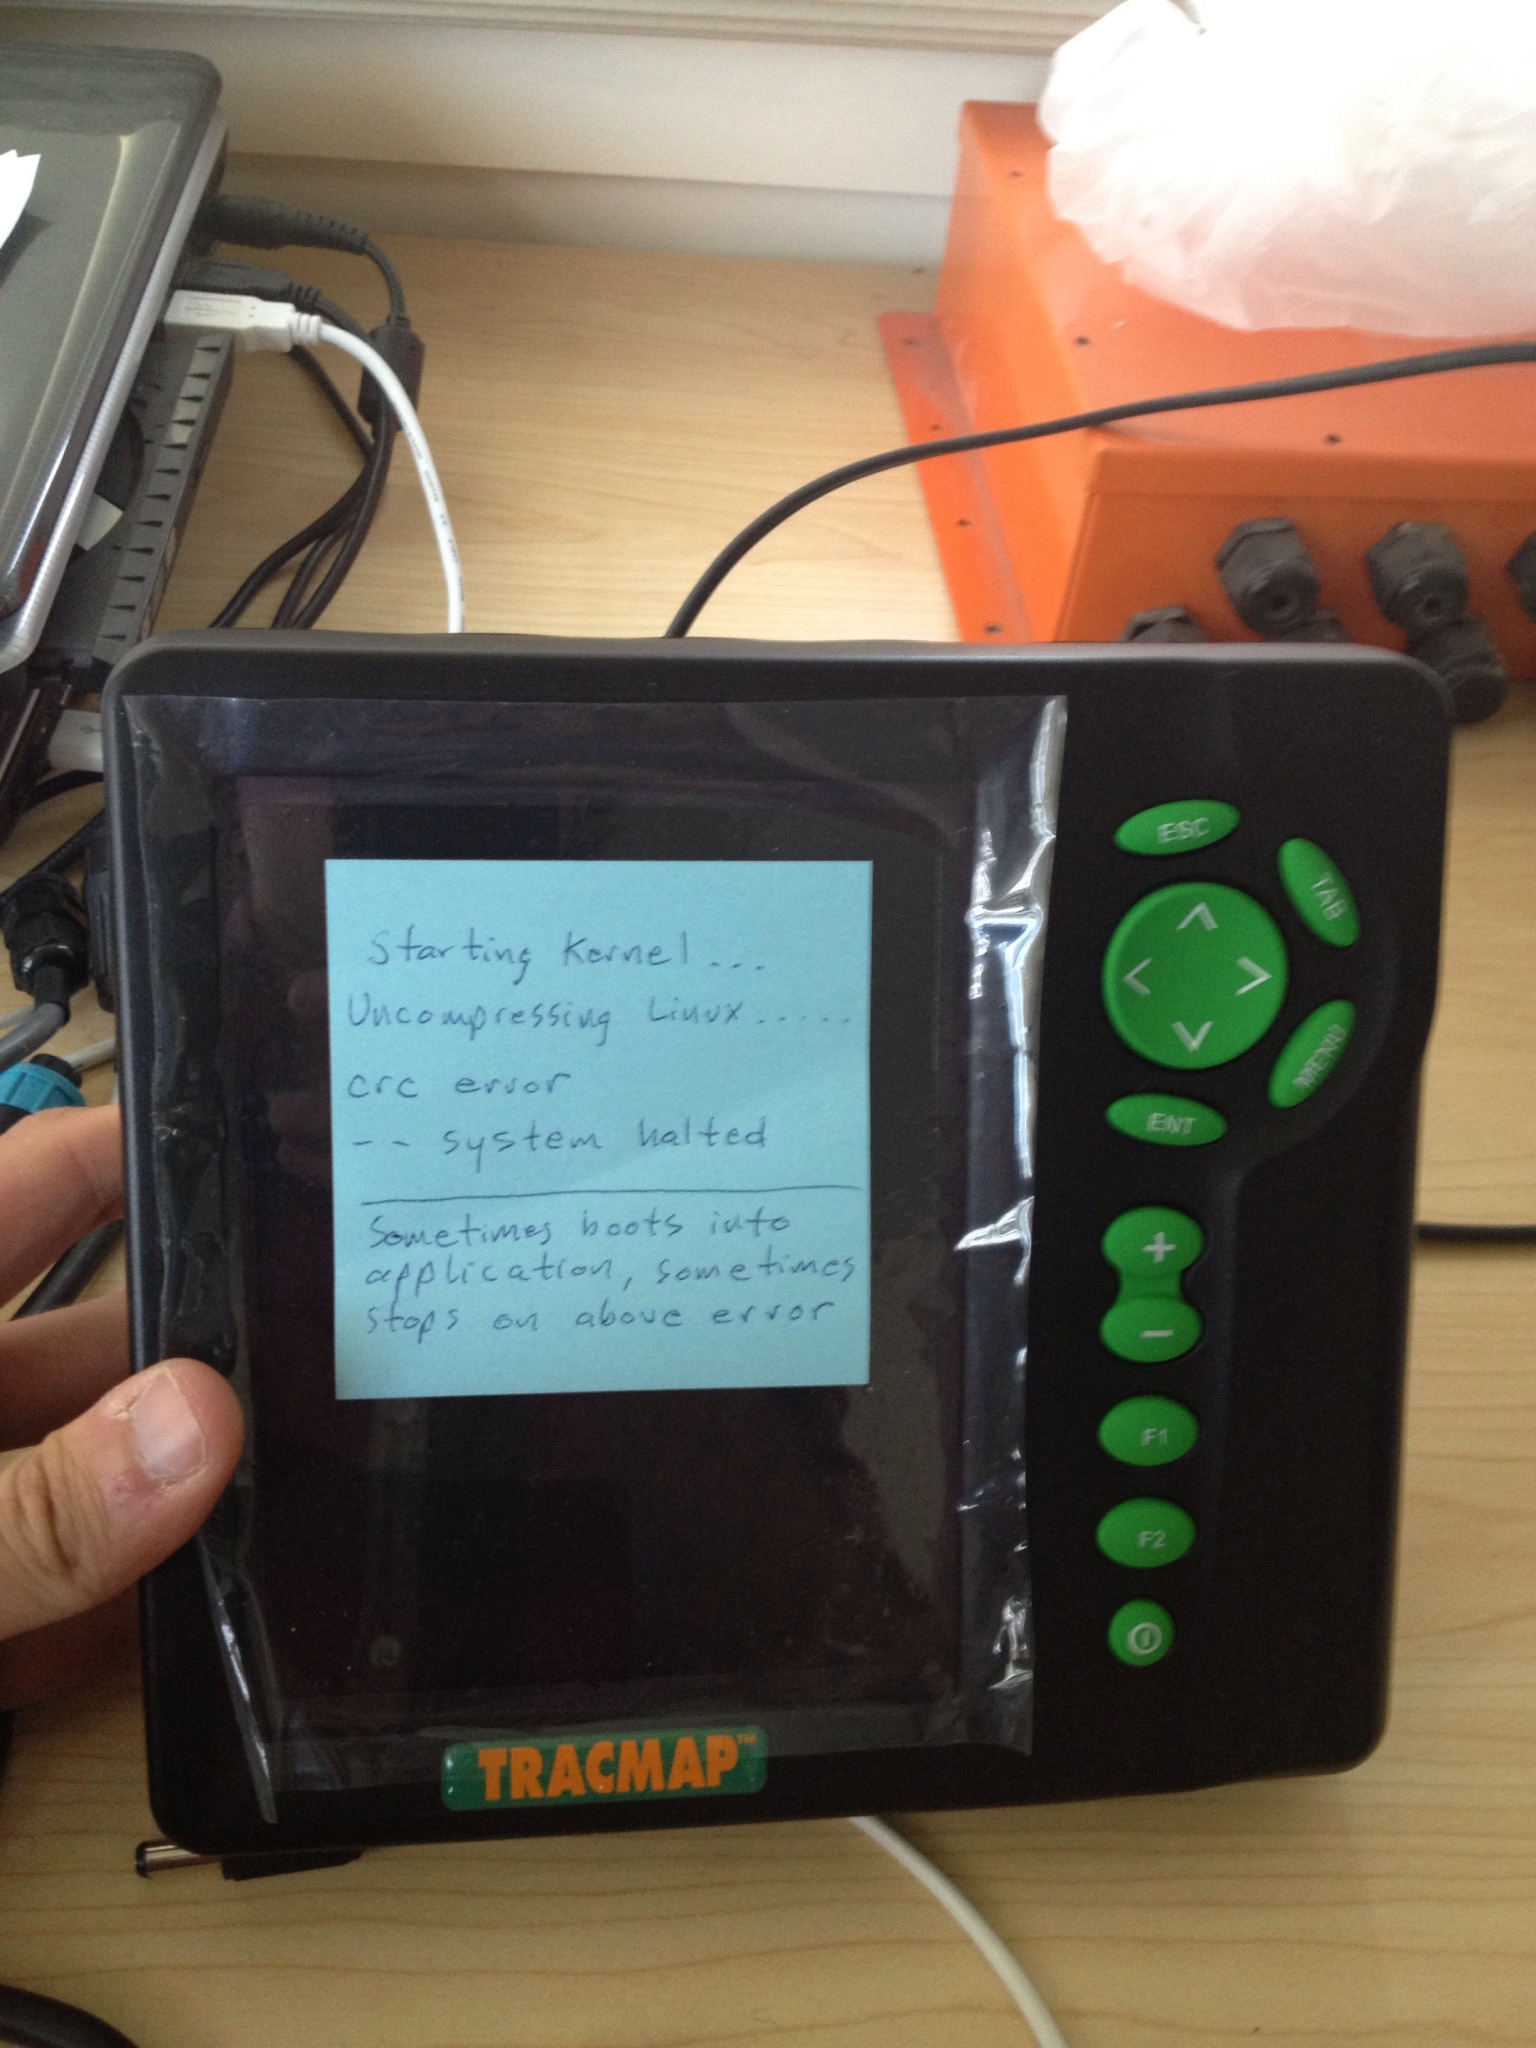 Starting Kernel...
Uncompressing Linux.....
crc error
-- system halted
Sometimes boots into
application, sometimes
stops on above error
ESC
TAB
MENU
ENT
+
-
F1
F2
TRACMAP™